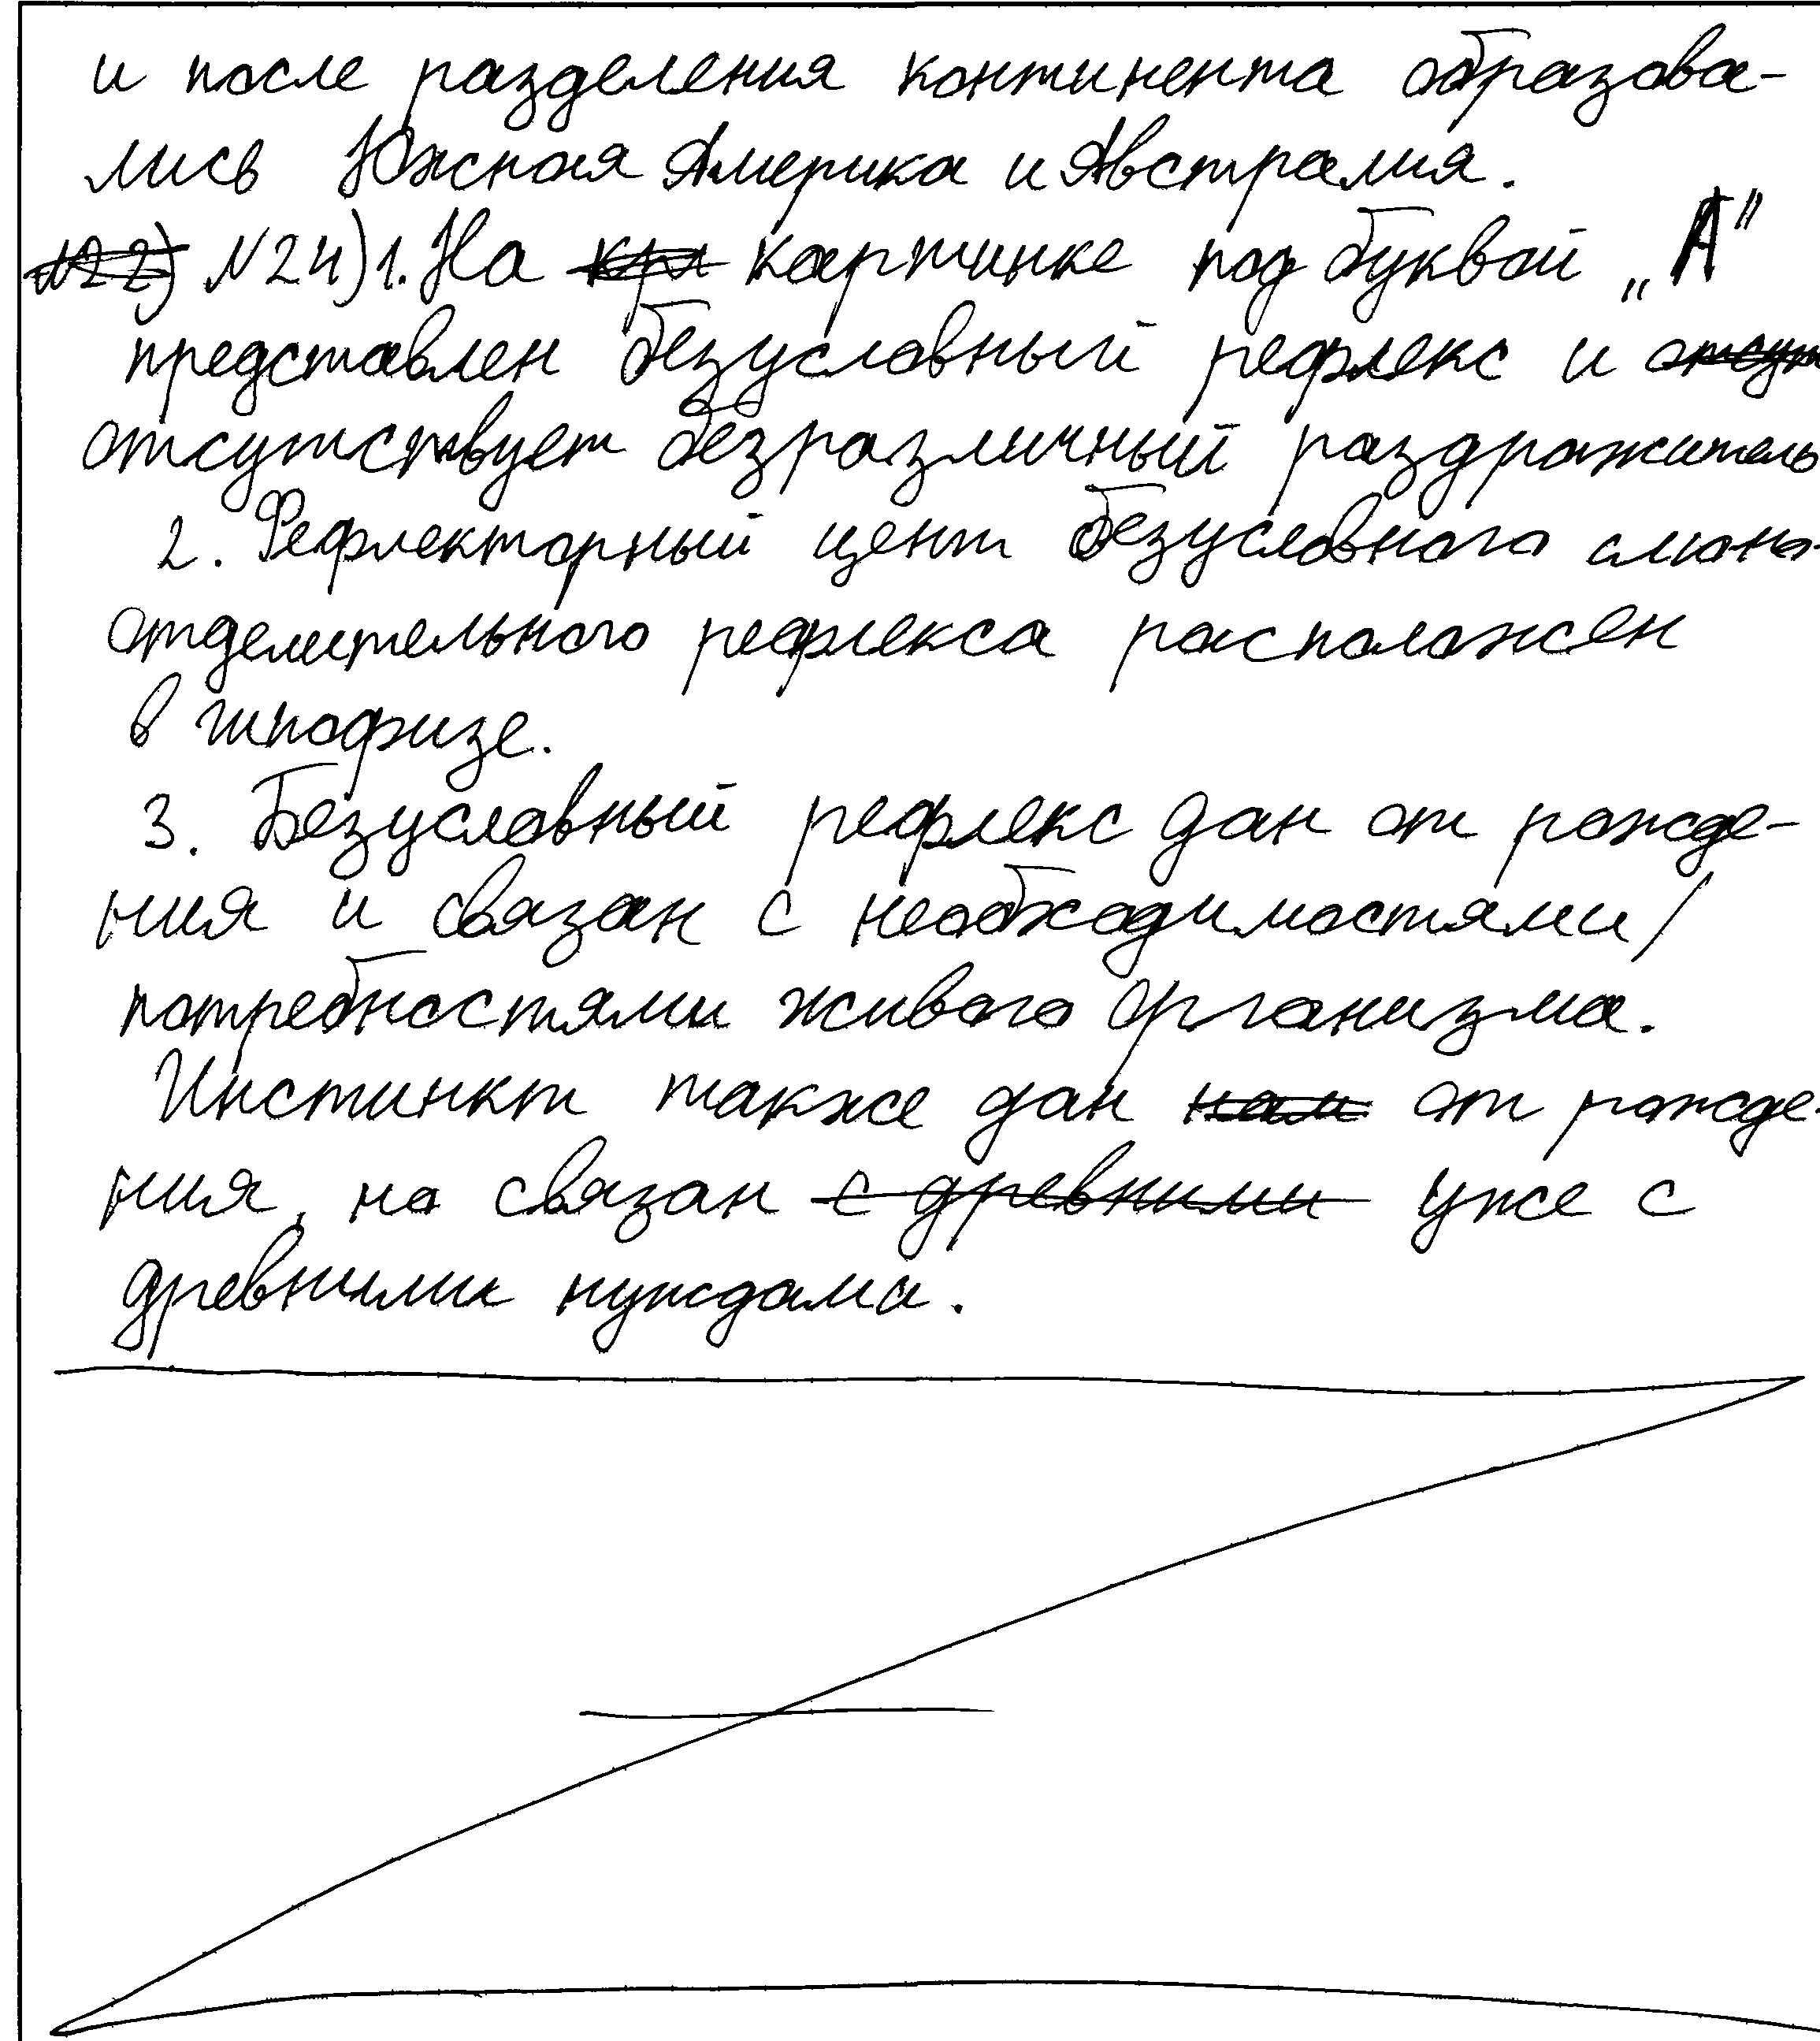 и после разделения континента образова-
лись Южная Америка и Австралия.
№22) №24)1. На кри картинке под буквой „А"
представлен безусловный рефлекс и отсут
отсутствует безразличный раздражитель
2. Рефлекторный цент безусловного слюно-
отделительного рефлекса расположен
в гипофизе.
3. Безусловный рефлекс дан от рожде-
ния и связан с необходимостями/
потребностями живого организма.
Инстинкт также дан нам от рожде-
ния, но связан с древними уже с
древними нуждами.